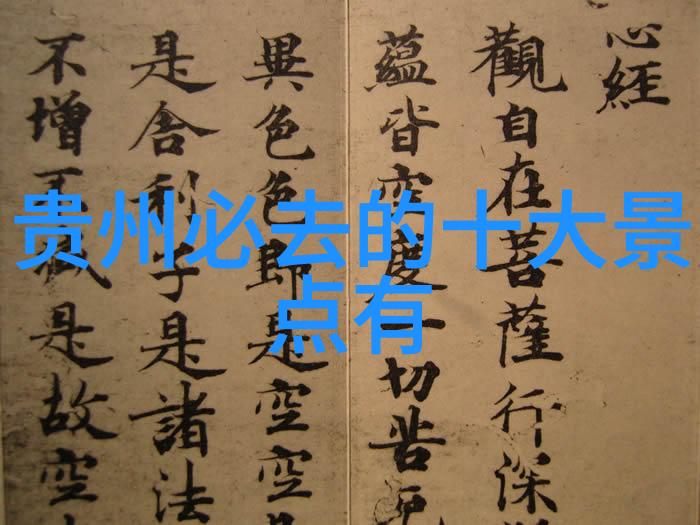 贵州必去的十大景
点有
心經
觀自在菩薩行深
蘊皆空度一切苦厄
異色色即是空空
是舍利子是諸法
不增不減是故空